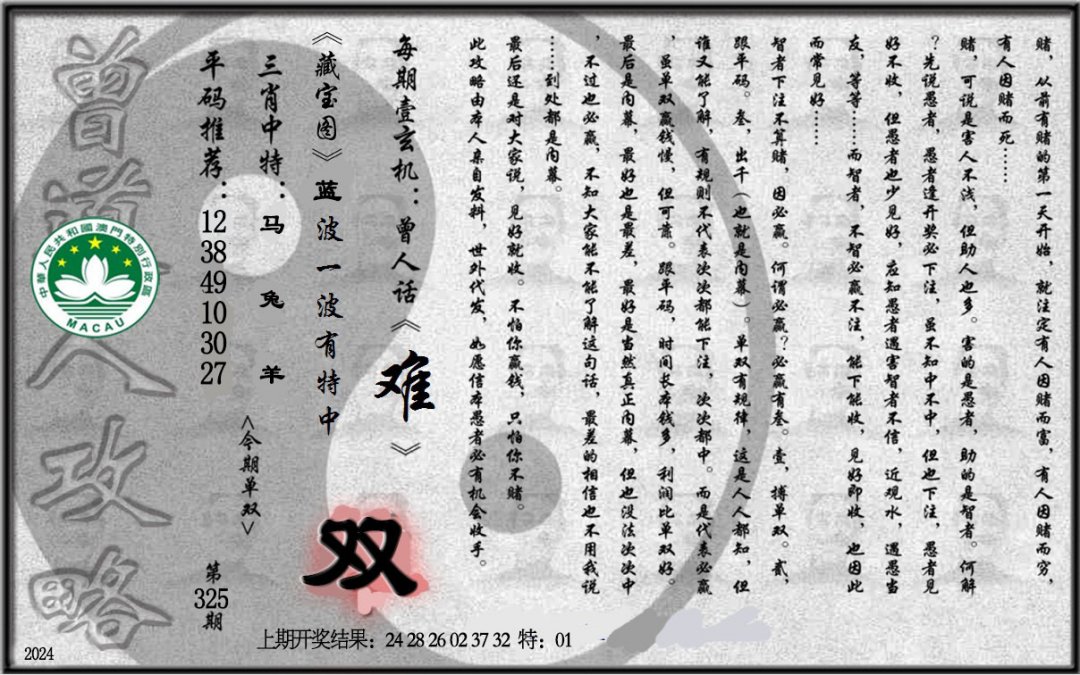 赌，从前有赌的第一天开始，就注定有人因赌而富，有人因赌而穷，
有人因赌而死……
赌，可说是害人不浅，但助人也多。害的是愚者，助的是智者。何解
？先说愚者，愚者逢开奖必下注，虽不知中不中，但也下注，愚者见
好不收，但愚者也少见好，应知愚者遇害智者不信，近观水，遇愚当
友，等等……而智者，不智必赢不注，能下能收，见好即收，也因此
而常见好……
智者下注不算赌，因必赢。何谓必赢？必赢有叁。壹，搏单双。贰，
跟平码。叁，出千（也就是内幕）。单双有规律，这是人人都知，但
谁又能了解，有规则不代表次次都能下注，次次都中。而是代表必赢
，虽单双赢钱慢，但可靠。跟平码，时间长本钱多，利润比单双好。
最后是内幕，最好也是最差，最好是当然真正内幕，但也没法次次中
，不过也必赢，不知大家能不能了解这句话，最差的相信也不用我说
……到处都是内幕。
最后还是对大家说，见好就收。不怕你赢钱，只怕你不赌。
此攻略由本人亲自发料，世外代发，如愿信本愚者必有机会收手。
每期壹玄机：曾人话《难》
《藏宝图》蓝波一波有特中
三肖中特：马 兔 羊
平码推荐：12 38 49 10 30 27
<今期单双>
双
第325期
曾道人攻略
中華人民共和國澳門特別行政區
MACAU
上期开奖结果：24 28 26 02 37 32 特：01
2024